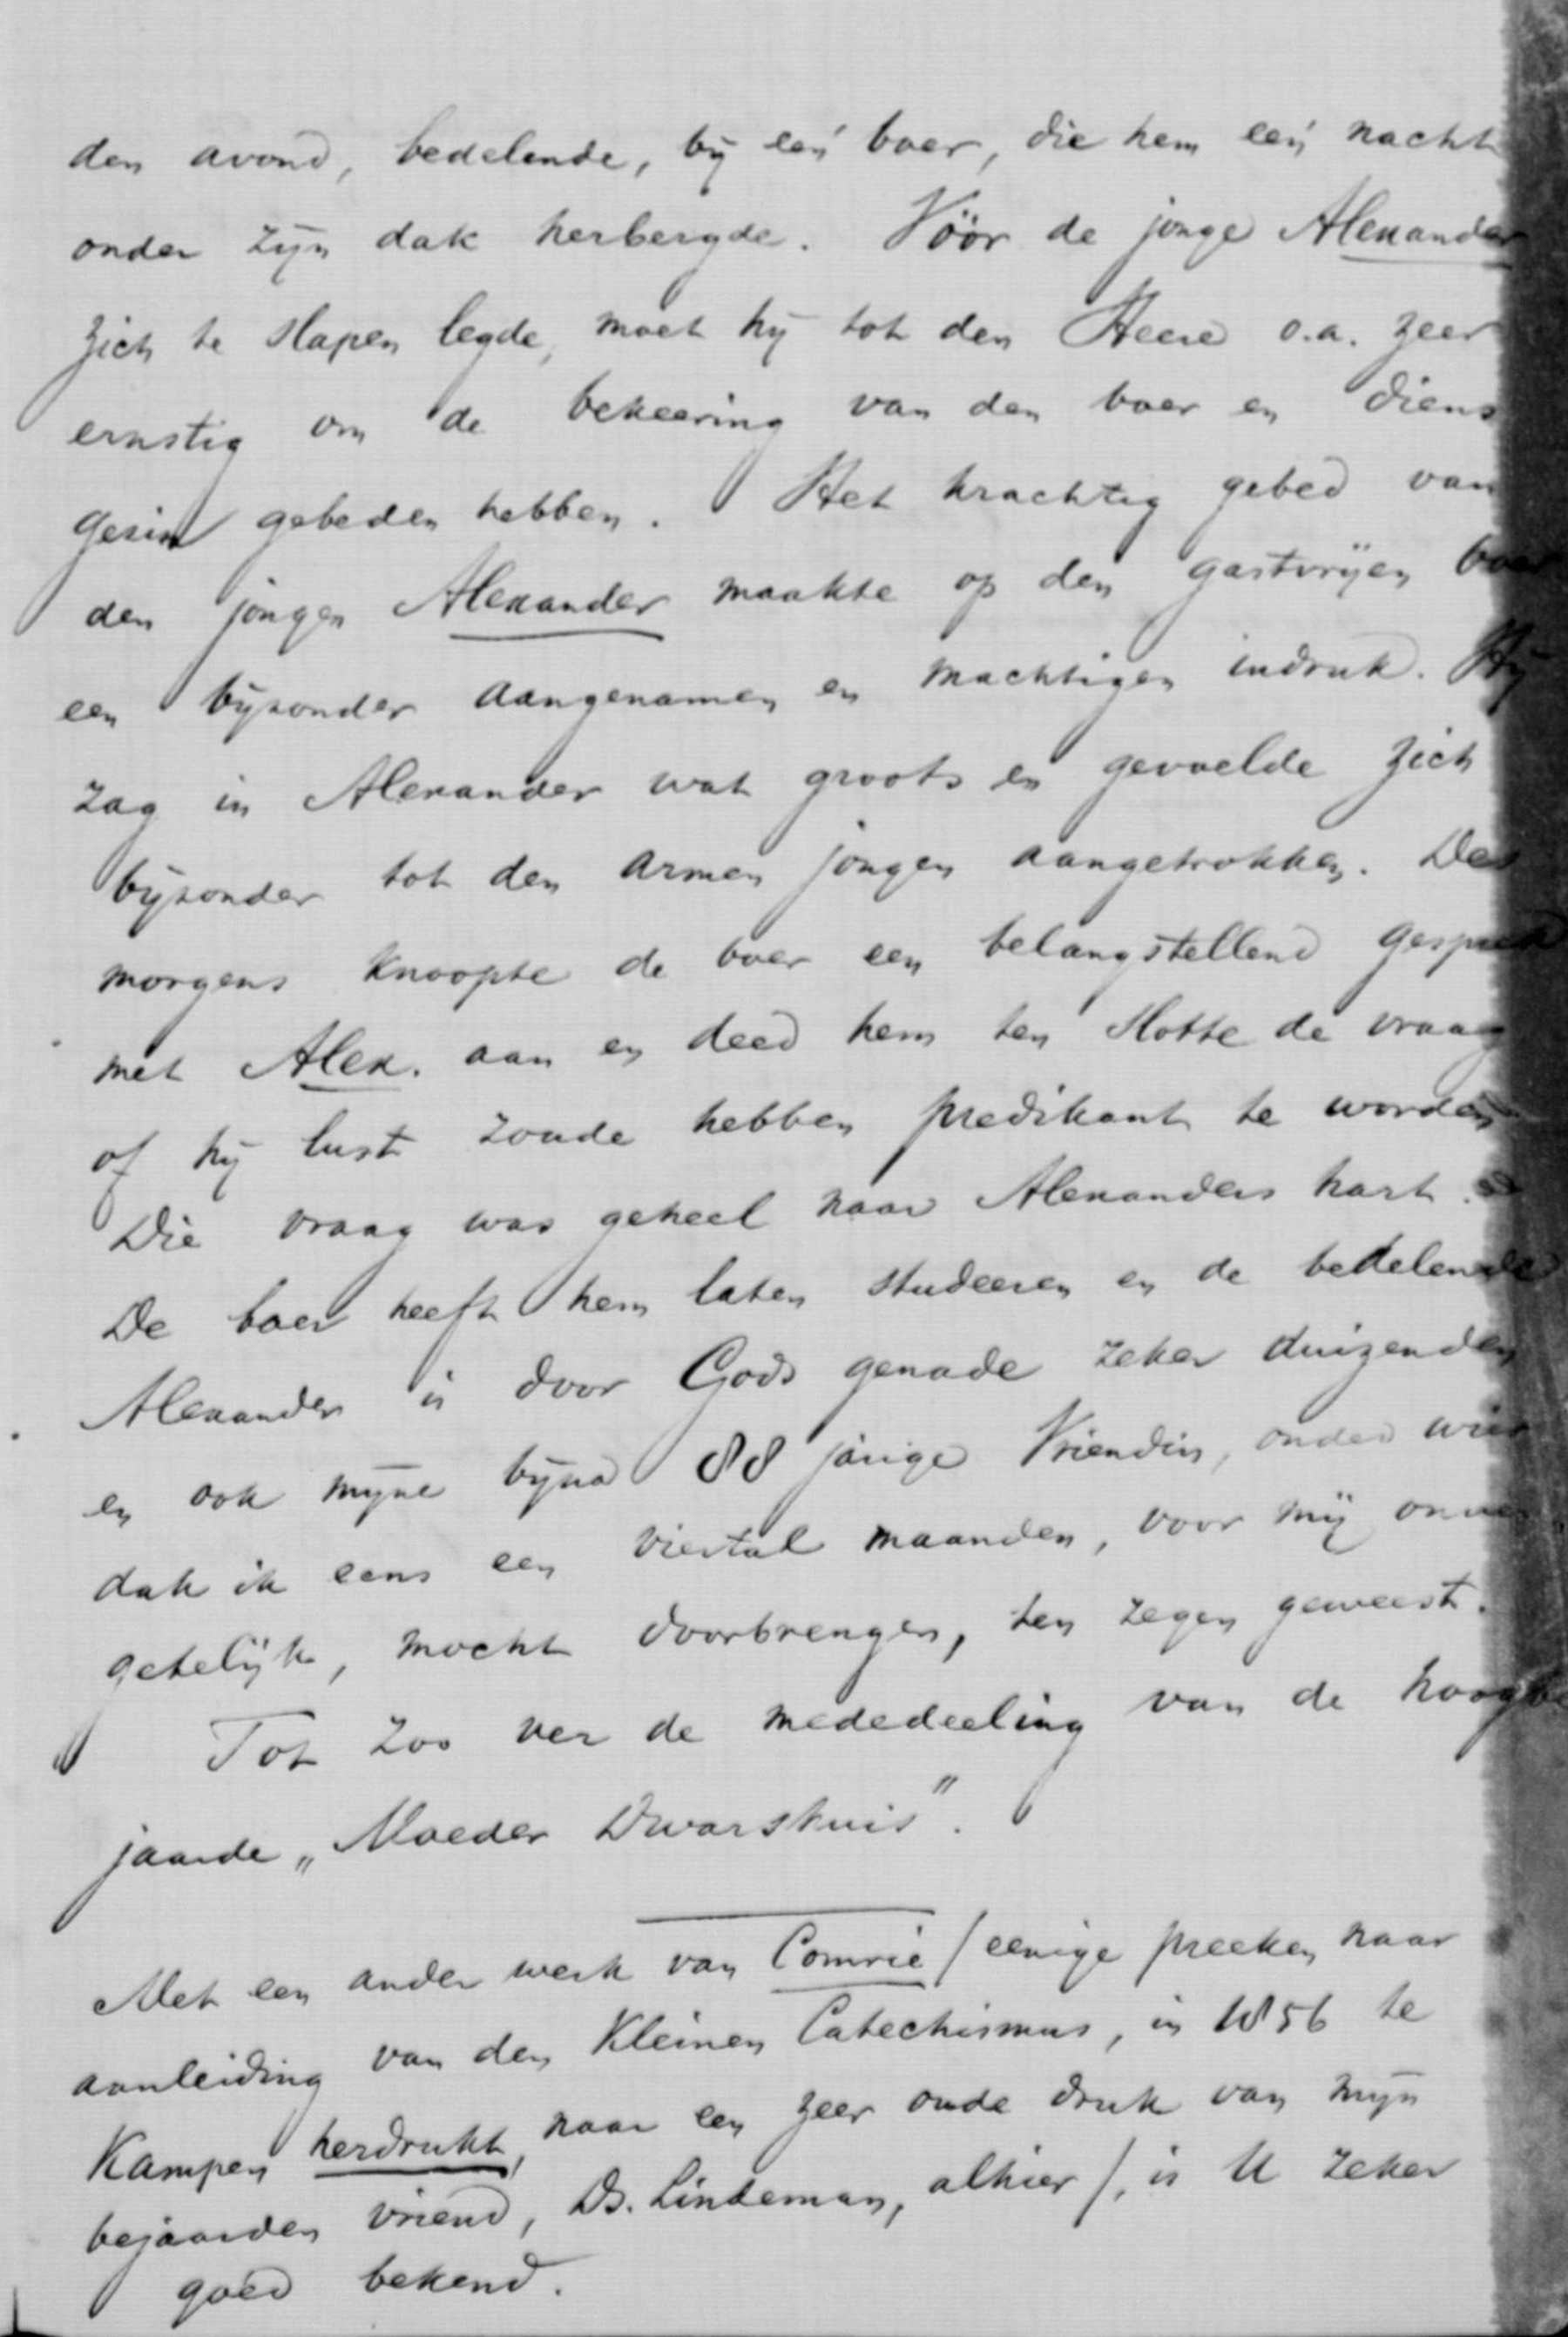 den avond, bedelende, by een boer, die hem een nacht
onder zyn dak herbergde. Vóór de jonge Alexander
zich te slapen legde, moet hy tot den Heere o.a. zeer
ernstig om de bekeering van den boer en diens
gezin gebeden hebben. Het krachtig gebed van
den jongen Alexander maakte op den gastvryen boer
een byzonder aangenamen en machtigen indruk. Hy
zag in Alexander wat groots en gevoelde zich
byzonder tot den armen jongen aangetrokken. Des
morgens knoopte de boer een belangstellend gesprek
met Alex. aan en deed hem ten slotte de vraag
of hy lust zoude hebben predikant te worden
Die vraag was geheel naar Alexanders hart.
De boer heeft hem laten studeeren en de bedelende
Alexander is door Gods genade zeker duizenden
en ook myne byna 88 jarige Vriendin, onder wier
dak ik eens een viertal maanden, voor my onver
getelyk, mocht doorbrengen, ten zegen geweest.
Tot zoo ver de mededeeling van de hoogbe
jaarde „Moeder Dwarshuis".
Met een ander werk van Comrie / eenige preeken naar
aanleiding van den Kleinen Catechismus, in 1856 te
Kampen herdrukt, naar een zeer oude druk van myn
bejaarden vriend, Ds. Lindeman, alhier /, is U zeker
goed bekend.